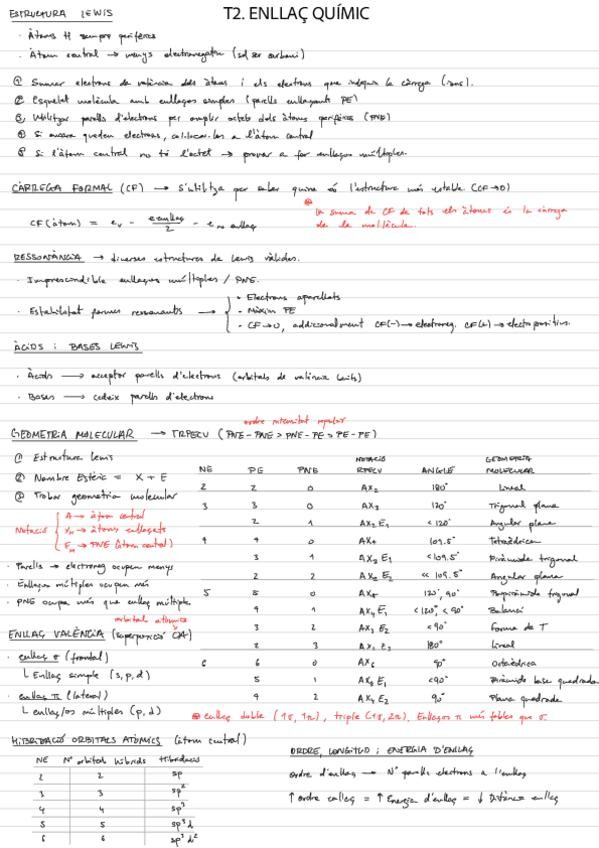 T2. ENLLAÇ QUÍMIC
ESTRUCTURA LEWIS
· Àtoms H sempre perifèrics
· Àtom central → menys electronegatiu (sol ser carboni)
① Sumar electrons de valència dels àtoms i els electrons que indiqui la càrrega (ions).
② Esquelet molècula amb enllaços simples (parells enllaçants PE)
③ Utilitzar parells d'electrons per omplir octets dels àtoms perifèrics (PNE)
④ Si encara queden electrons, col·locar-los a l'àtom central
⑤ Si l'àtom central no té l'octet → provar a fer enllaços múltiples.
CÀRREGA FORMAL (CF) → S'utilitza per saber quina és l'estructura més estable (CF→0)
La suma de CF de tots els àtoms és la càrrega
de la molècula.
CF(àtom) = e_v - e enllaç/2 - e no enllaç
RESSONÀNCIA → diverses estructures de Lewis vàlides.
· Imprescindible enllaços múltiples / PNE.
· Estabilitat formes ressonants →
- Electrons aparellats
- Màxim PE
- CF→0, addicionalment CF(-)→electroneg. CF(+)→electropositius.
ÀCIDS i BASES LEWIS
· Àcids → acceptor parells d'electrons (orbitals de valència buits)
· Bases → cedeix parells d'electrons
ordre intensitat repulsió
GEOMETRIA MOLECULAR → TRPECV (PNE-PNE > PNE-PE > PE-PE)
① Estructura Lewis
② Nombre Estèric = X + E
③ Trobar geometria molecular
Notació
A → àtom central
X_n → àtoms enllaçats
E_m → PNE (àtom central)
· Parells → electroneg ocupen menys
· Enllaços múltiples ocupen més
· PNE ocupa més que enllaç múltiple
NE PE PNE NOTACIÓ RPECV ANGLE GEOMETRIA MOLECULAR
2 2 0 AX₂ 180° Lineal
3 3 0 AX₃ 120° Trigonal plana
2 1 AX₂E₁ <120° Angular plana
4 4 0 AX₄ 109.5° Tetraèdrica
3 1 AX₃E₁ <109.5° Piràmide trigonal
2 2 AX₂E₂ << 109.5° Angular plana
5 5 0 120°, 90° Bipiràmide trigonal
4 1 AX₄E₁ <120°, <90° Balancí
3 2 AX₃E₂ <90° Forma de T
2 3 AX₂E₃ 180° Lineal
6 6 0 AX₆ 90° Octaèdrica
5 1 AX₅E₁ <90° Piràmide base quadrada
4 2 AX₄E₂ 90° Plana quadrada
orbital atòmics
ENLLAÇ VALÈNCIA (superposició OA)
· enllaç σ (frontal)
└ Enllaç simple (s, p, d)
· enllaç π (lateral)
└ enllaç/os múltiples (p, d)
enllaç doble (1σ, 1π), triple (1σ, 2π). Enllaços π més febles que σ.
HIBRIDACIÓ ORBITALS ATÒMICS (àtom central)
NE Nº orbital híbrids Hibridació
2 2 sp
3 3 sp²
4 4 sp³
5 5 sp³d
6 6 sp³d²
ORDRE, LONGITUD i ENERGIA D'ENLLAÇ
Ordre d'enllaç → Nº parells electrons a l'enllaç
↑ ordre enllaç = ↑ Energia d'enllaç = ↓ Distància enllaç